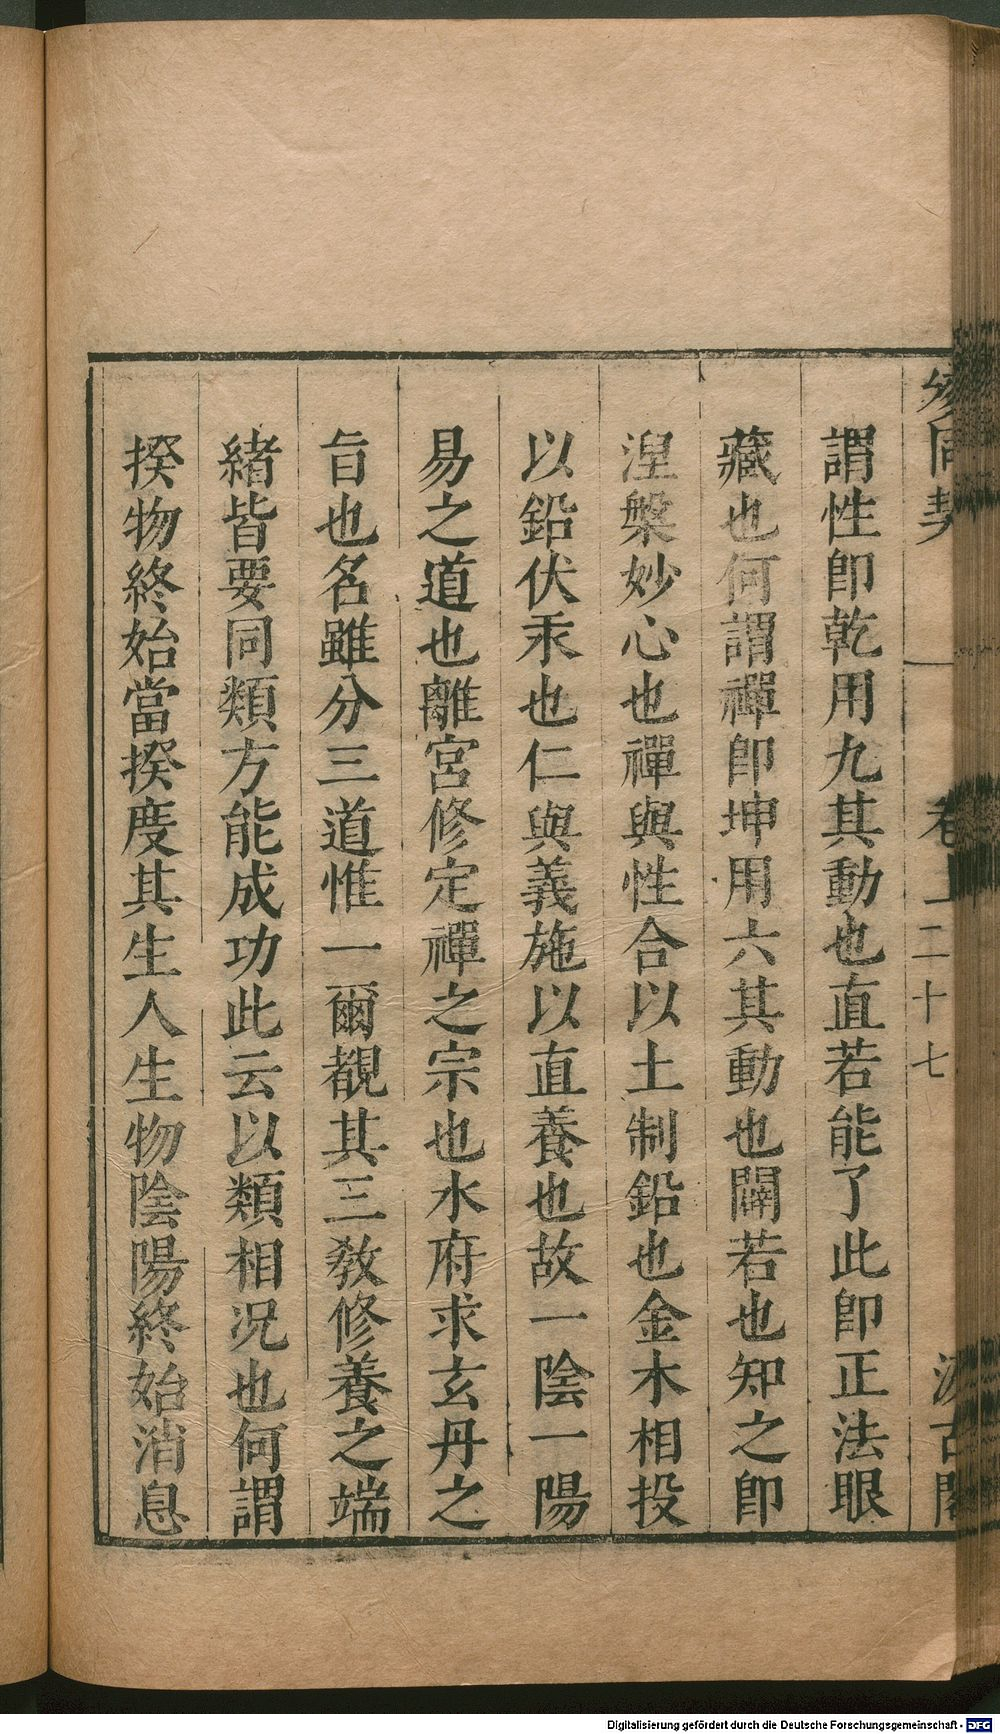 參同契 卷上 二十七 汲古閣
謂性即乾用九其動也直若能了此即正法眼
藏也何謂禪即坤用六其動也闢若也知之即
涅槃妙心也禪與性合以土制鉛也金木相投
以鉛伏汞也仁與義施以直養也故一陰一陽
易之道也離宮修定禪之宗也水府求玄丹之
旨也名雖分三道惟一爾覩其三教修養之端
緒皆要同類方能成功此云以類相况也何謂
揆物終始當揆度其生人生物陰陽終始消息
Digitalisierung gefördert durch die Deutsche Forschungsgemeinschaft - DFG